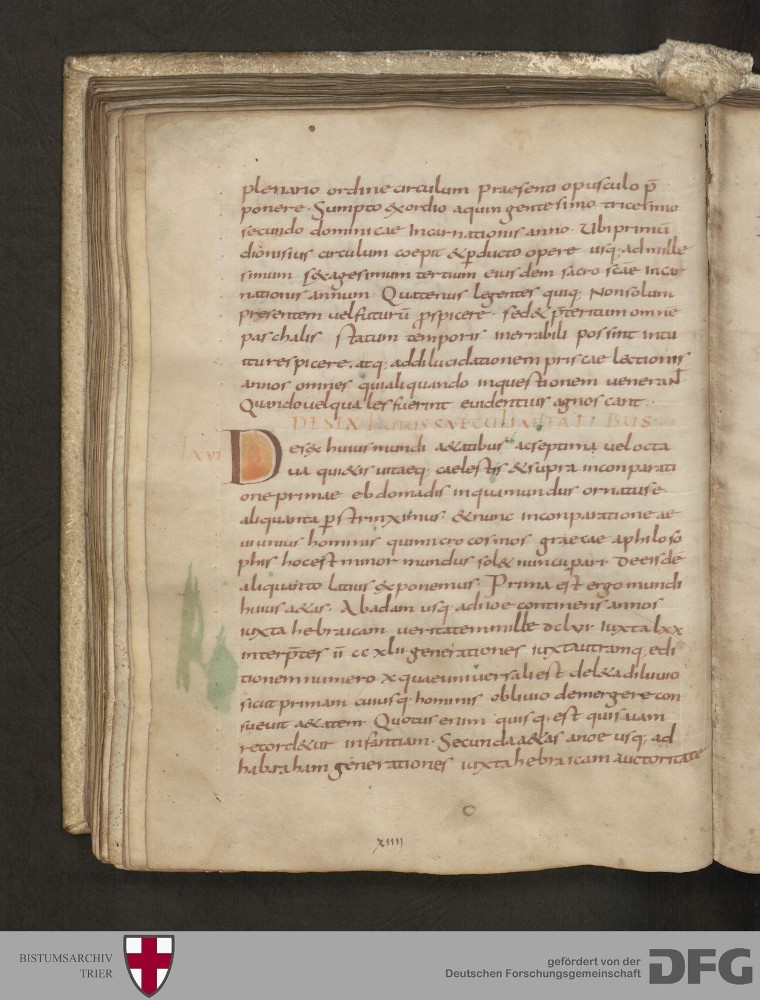 plenario ordine circulum praesenti opusculo p̄
ponere. Sumpto exordio aquingentesimo tricesimo
secundo dominicae Incarnationis anno. Ubi primū
dionisius circulum coepit &pducto opere usq; ad mille
simum sexagesimum tertium eiusdem sacro scāe incar
nationis annum. Quatenus legentes quiq; Non solum
presentem vel futurū pspicere. sed& p̄teritum omne
paschalis statum temporis inerrabili possint intu
itu respicere. atq; addilucidationem priscae lectionis
annos omnes qui aliquando inquestionem venerant
Quando vel quales fuerint evidentius agnoscant.
DE SEX HUIUS SAECULI AETATIBUS
LXVI
De sex huius mundi aetatibus ac septima vel octa
va qui&is vitaeq; caelestis &supra in conparati
one primae ebdomadis inqua mundus ornatus e.
aliquanta pstrinximus. &nunc inconparatione ae
vi unius hominis qui microcosmos graecae a philoso
phis hoc est minor mundus sol& nuncupari de eisdē
aliquanto latius exponemus. Prima est ergo mundi
huius a&as. Ab adam usq; ad noe continens annos
iuxta hebraicam veritatem mille dclvi. Iuxta lxx
interp̄tes īī cc xlii generationes iuxta utramq; edi
tionem numero x quae universali est del&a diluvio
sicut primam cuiusq; hominis oblivio demergere con
suevit a&atem. Quotus enim quisq; est qui suam
record&ur infantiam. Secunda a&as anoe usq; ad
habraham generationes iuxta hebraicam auctoritate
xiiii
BISTUMSARCHIV
TRIER
gefördert von der
Deutschen Forschungsgemeinschaft
DFG